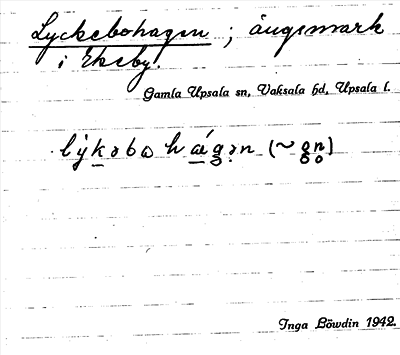 Lyckebohagen ; ängsmark
i Ekeby.
Gamla Upsala sn, Vaksala hd, Upsala l.
lýkəbω hǽgən (~ gn̥)
Inga Löwdin 1942.